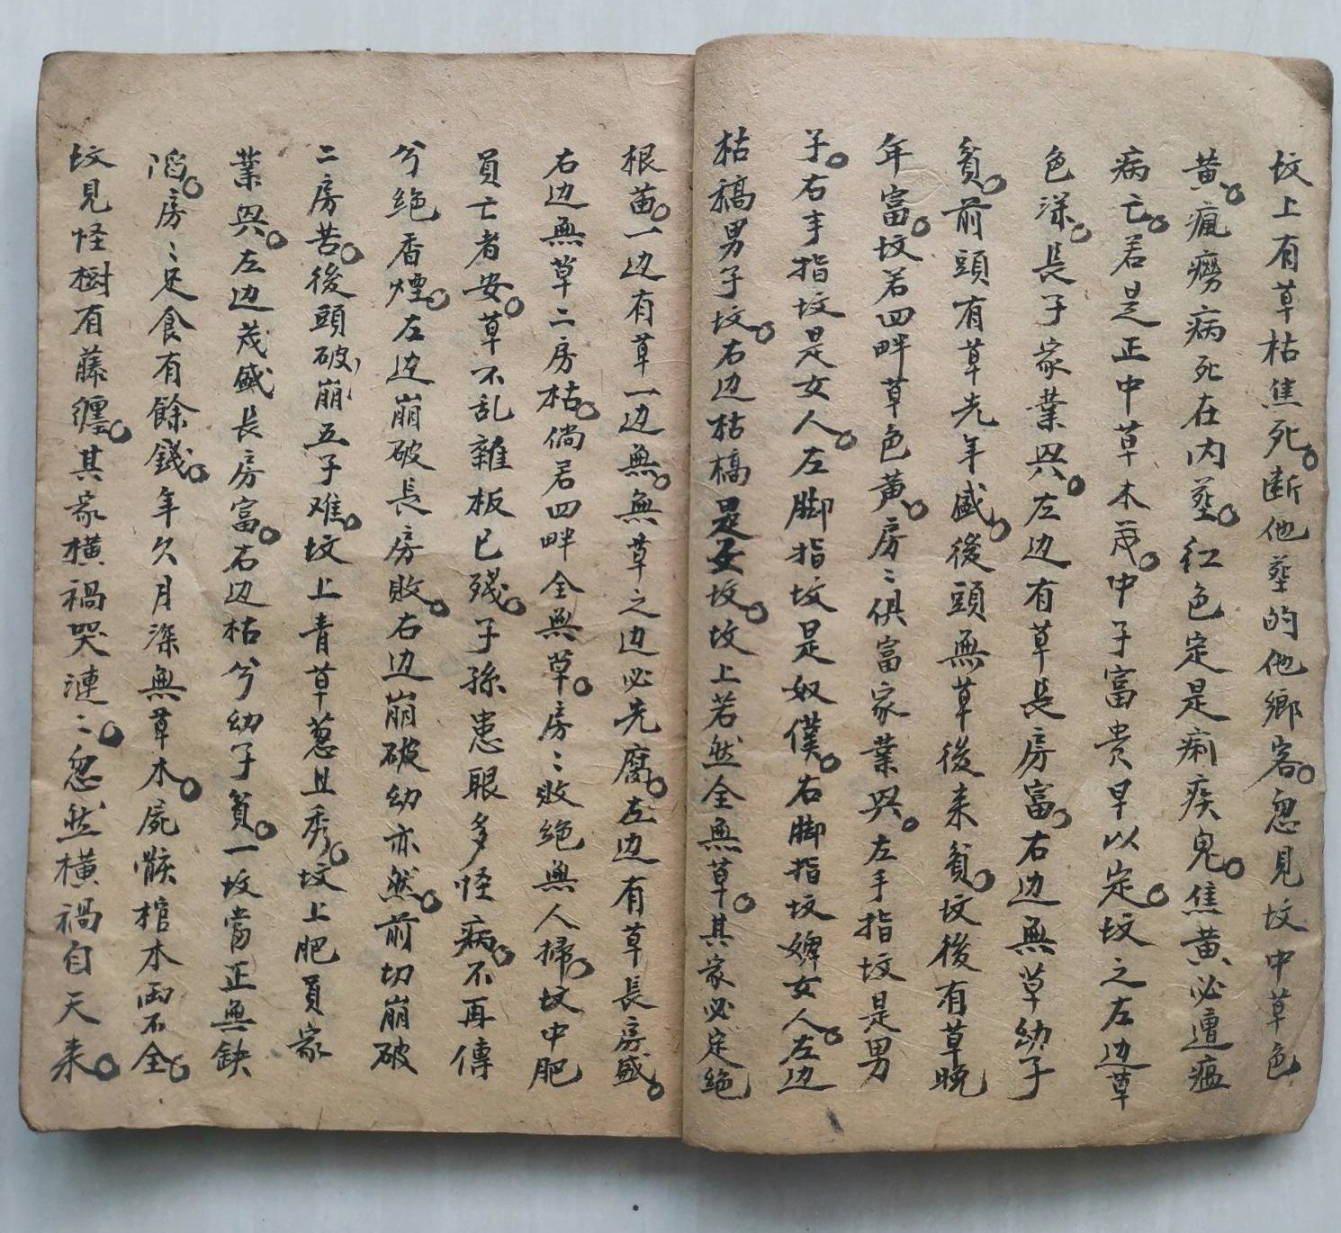 坟上有草枯焦死。断他塟的他鄉客。忽見坟中草色
黄。瘋癆病死在内塟。红色定是痢疾鬼。焦黄必遭瘟
病亡。若是正中草木茂。中子富贵早以定。坟之左边草
色深。長子家業興。左边有草長房富。右边無草幼子
貧。前頭有草先年盛。後頭無草後来貧。坟後有草晚
年富。坟若四畔草色黄。房〻俱富家業興。左手指坟是男
子。右手指坟是女人。左脚指坟是奴僕。右脚指坟婢女人。左边
枯稿男子坟。右边枯槁是女坟。坟上若然全無草。其家必定絶
根苗。一边有草一边無。無草之边必先腐。左边有草長房盛。
右边無草二房枯。倘若四畔全無草。房〻敗絶無人掃。坟中肥
員亡者安。草不乱雜板已殘。子孫患眼多怪病。不再傳
兮絶香煙。左边崩破長房敗。右边崩破幼亦然。前切崩破
二房苦。後頭破崩五子难。坟上青草葱且秀。坟上肥員家
業興。左边茂盛長房富。右边枯兮幼子貧。一坟當正無缺
陷。房〻足食有餘錢。年久月深無草木。屍骸棺木両不全。
坟見怪樹有藤纏。其家横禍哭漣〻。忽然横禍自天来。